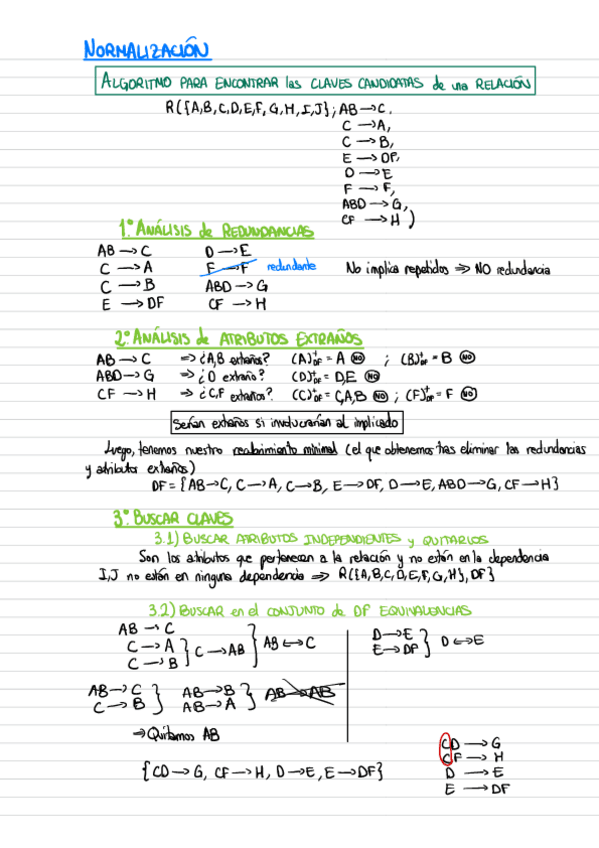 NORMALIZACIÓN
ALGORITMO PARA ENCONTRAR las CLAVES CANDIDATAS de una RELACIÓN
R({A,B,C,D,E,F,G,H,I,J}; AB → C,
C → A,
C → B,
E → DF,
D → E
F → F,
ABD → G,
CF → H)
1º ANÁLISIS de REDUNDANCIAS
AB → C D → E
C → A F → F redundante No implica repetidos ⇒ NO redundancia
C → B ABD → G
E → DF CF → H
2º ANÁLISIS de ATRIBUTOS EXTRAÑOS
AB → C ⇒ ¿A,B extraños? (A)⁺DF = A NO ; (B)⁺DF = B NO
ABD → G ⇒ ¿D extraño? (D)⁺DF = D,E NO
CF → H ⇒ ¿C,F extraños? (C)⁺DF = C,A,B NO ; (F)⁺DF = F NO
Serían extraños si involucrarían al implicado
Luego, tenemos nuestro recubrimiento minimal (el que obtenemos tras eliminar las redundancias
y atributos extraños)
DF = {AB → C, C → A, C → B, E → DF, D → E, ABD → G, CF → H}
3º BUSCAR CLAVES
3.1) BUSCAR ATRIBUTOS INDEPENDIENTES y QUITARLOS
Son los atributos que pertenecen a la relación y no están en la dependencia
I,J no están en ninguna dependencia ⇒ R({A,B,C,D,E,F,G,H}, DF)
3.2) BUSCAR en el CONJUNTO de DF EQUIVALENCIAS
AB → C
C → A } C → AB } AB ↔ C
C → B
D → E
E → DF } D ↔ E
AB → C } AB → B } AB → AB
C → B AB → A
⇒ Quitamos AB
{CD → G, CF → H, D → E, E → DF}
CD → G
CF → H
D → E
E → DF